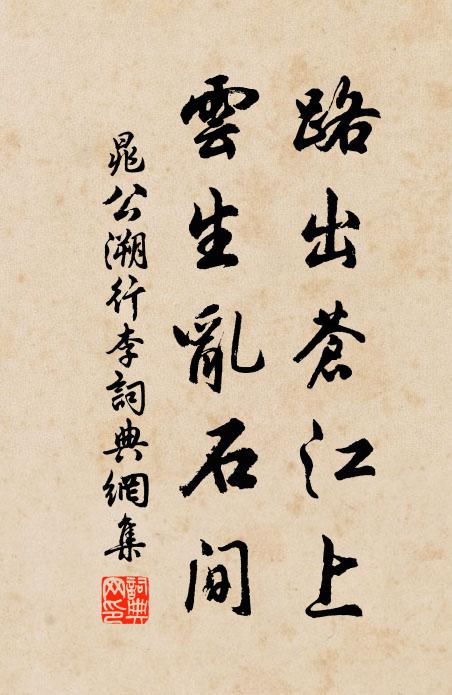 路出蒼江上
雲生亂石間
晁公溯行李詞典網集
詞典網印